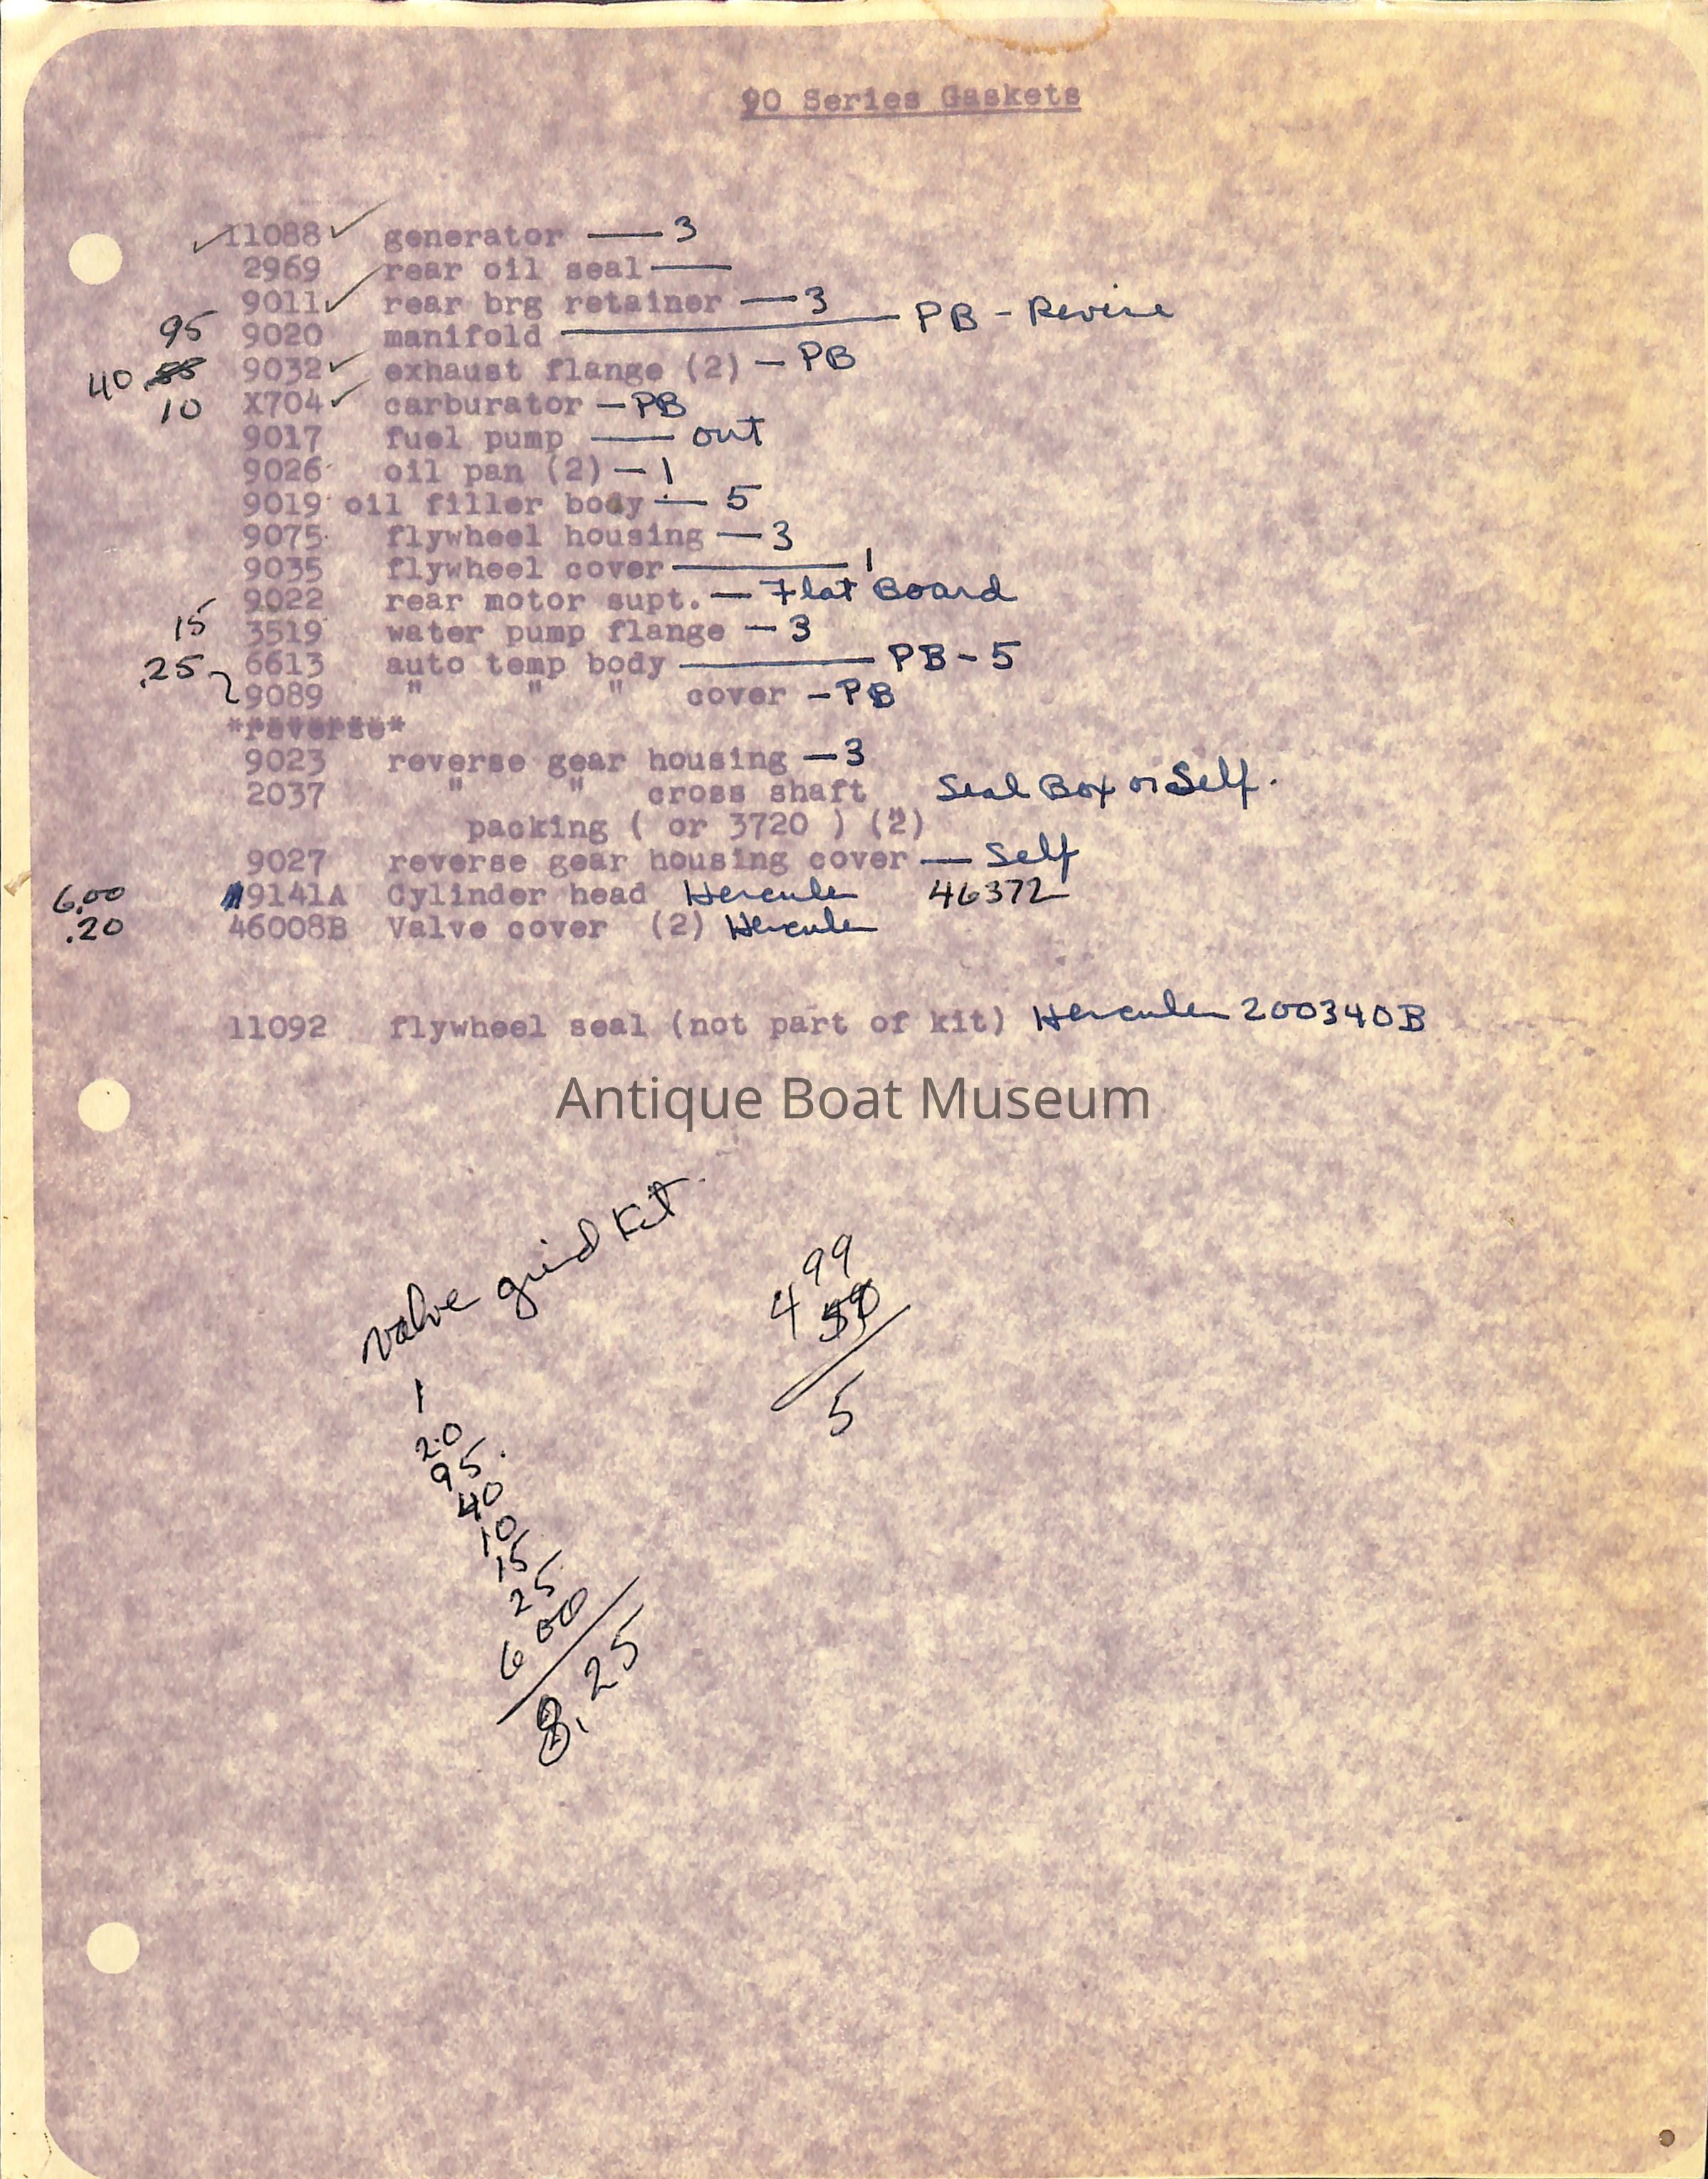 90 Series Gaskets
11088 ✓ generator — 3
2969 rear oil seal —
9011 ✓ rear brg retainer — 3
95 9020 manifold — PB - Revise
40 9032 ✓ exhaust flange (2) — PB
10 X704 ✓ carburator — PB
9017 fuel pump — out
9026 oil pan (2) — 1
9019 oil filler body — 5
9075 flywheel housing — 3
9035 flywheel cover — 1
9022 rear motor supt. — Flat Board
15 3519 water pump flange — 3
.25 6613 auto temp body — PB - 5
9089 " " " cover - PB
*reverse*
9023 reverse gear housing — 3
2037 " " cross shaft Seal Box or Self.
packing ( or 3720 ) (2)
9027 reverse gear housing cover — Self
6.00 9141A Cylinder head Hercules 46372
.20 46008B Valve cover (2) Hercules
11092 flywheel seal (not part of kit) Hercules 200340B
Antique Boat Museum
valve grind Kit
1
20
95
40
10
15
25
6 00
8.25
99
4
5